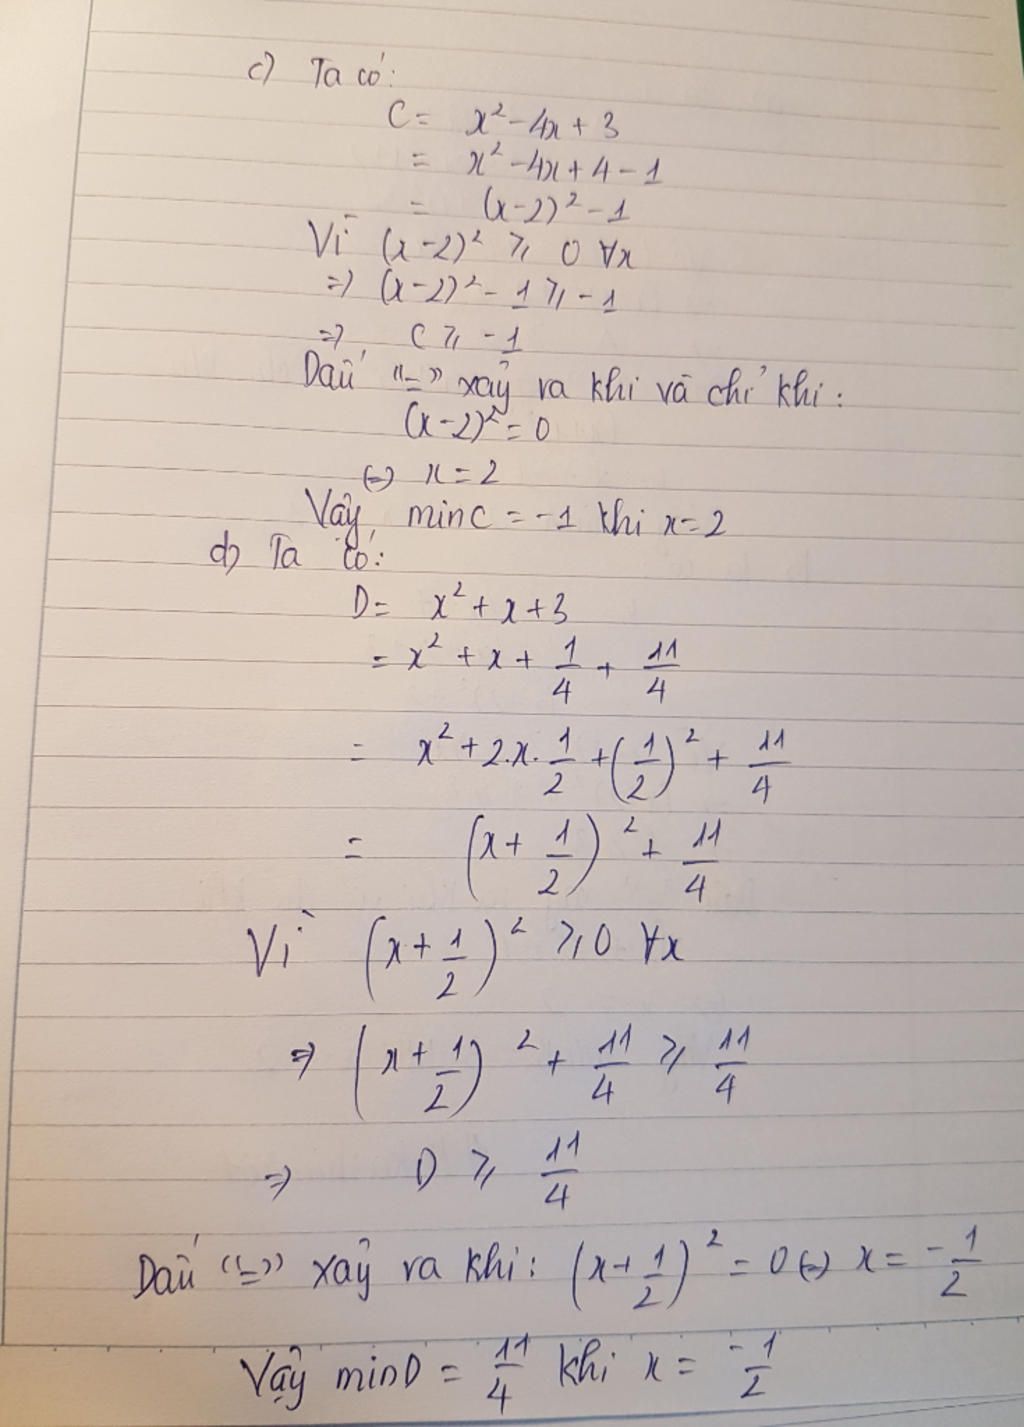 c) Ta có:
C = x² - 4x + 3
= x² - 4x + 4 - 1
= (x-2)² - 1
Vì (x-2)² ⩾ 0 ∀x
=> (x-2)² - 1 ⩾ -1
=> C ⩾ -1
Dấu "=" xảy ra khi và chỉ khi:
(x-2)² = 0
(=) x = 2
Vậy minC = -1 khi x = 2
d) Ta có:
D = x² + x + 3
= x² + x + 1/4 + 11/4
= x² + 2.x.1/2 + (1/2)² + 11/4
= (x + 1/2)² + 11/4
Vì (x + 1/2)² ⩾ 0 ∀x
=> (x + 1/2)² + 11/4 ⩾ 11/4
=> D ⩾ 11/4
Dấu "=" xảy ra khi: (x + 1/2)² = 0 (=) x = -1/2
Vậy minD = 11/4 khi x = -1/2